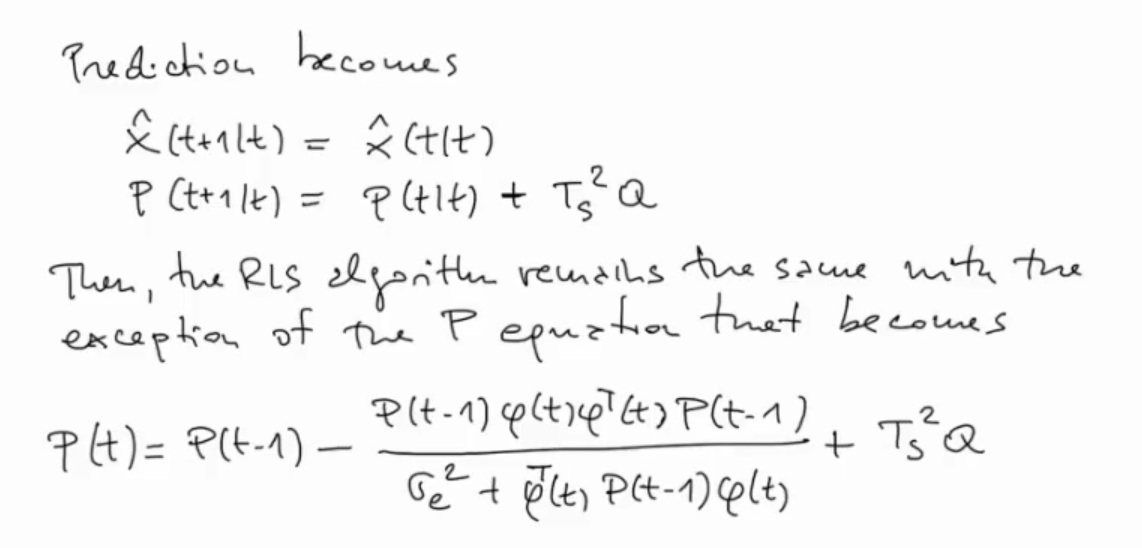 Prediction becomes
x̂(t+1|t) = x̂(t|t)
P(t+1|t) = P(t|t) + Ts² Q
Then, the RLS algorithm remains the same with the
exception of the P equation that becomes
P(t) = P(t-1) - P(t-1)φ(t)φᵀ(t)P(t-1) / σe² + φᵀ(t)P(t-1)φ(t) + Ts² Q